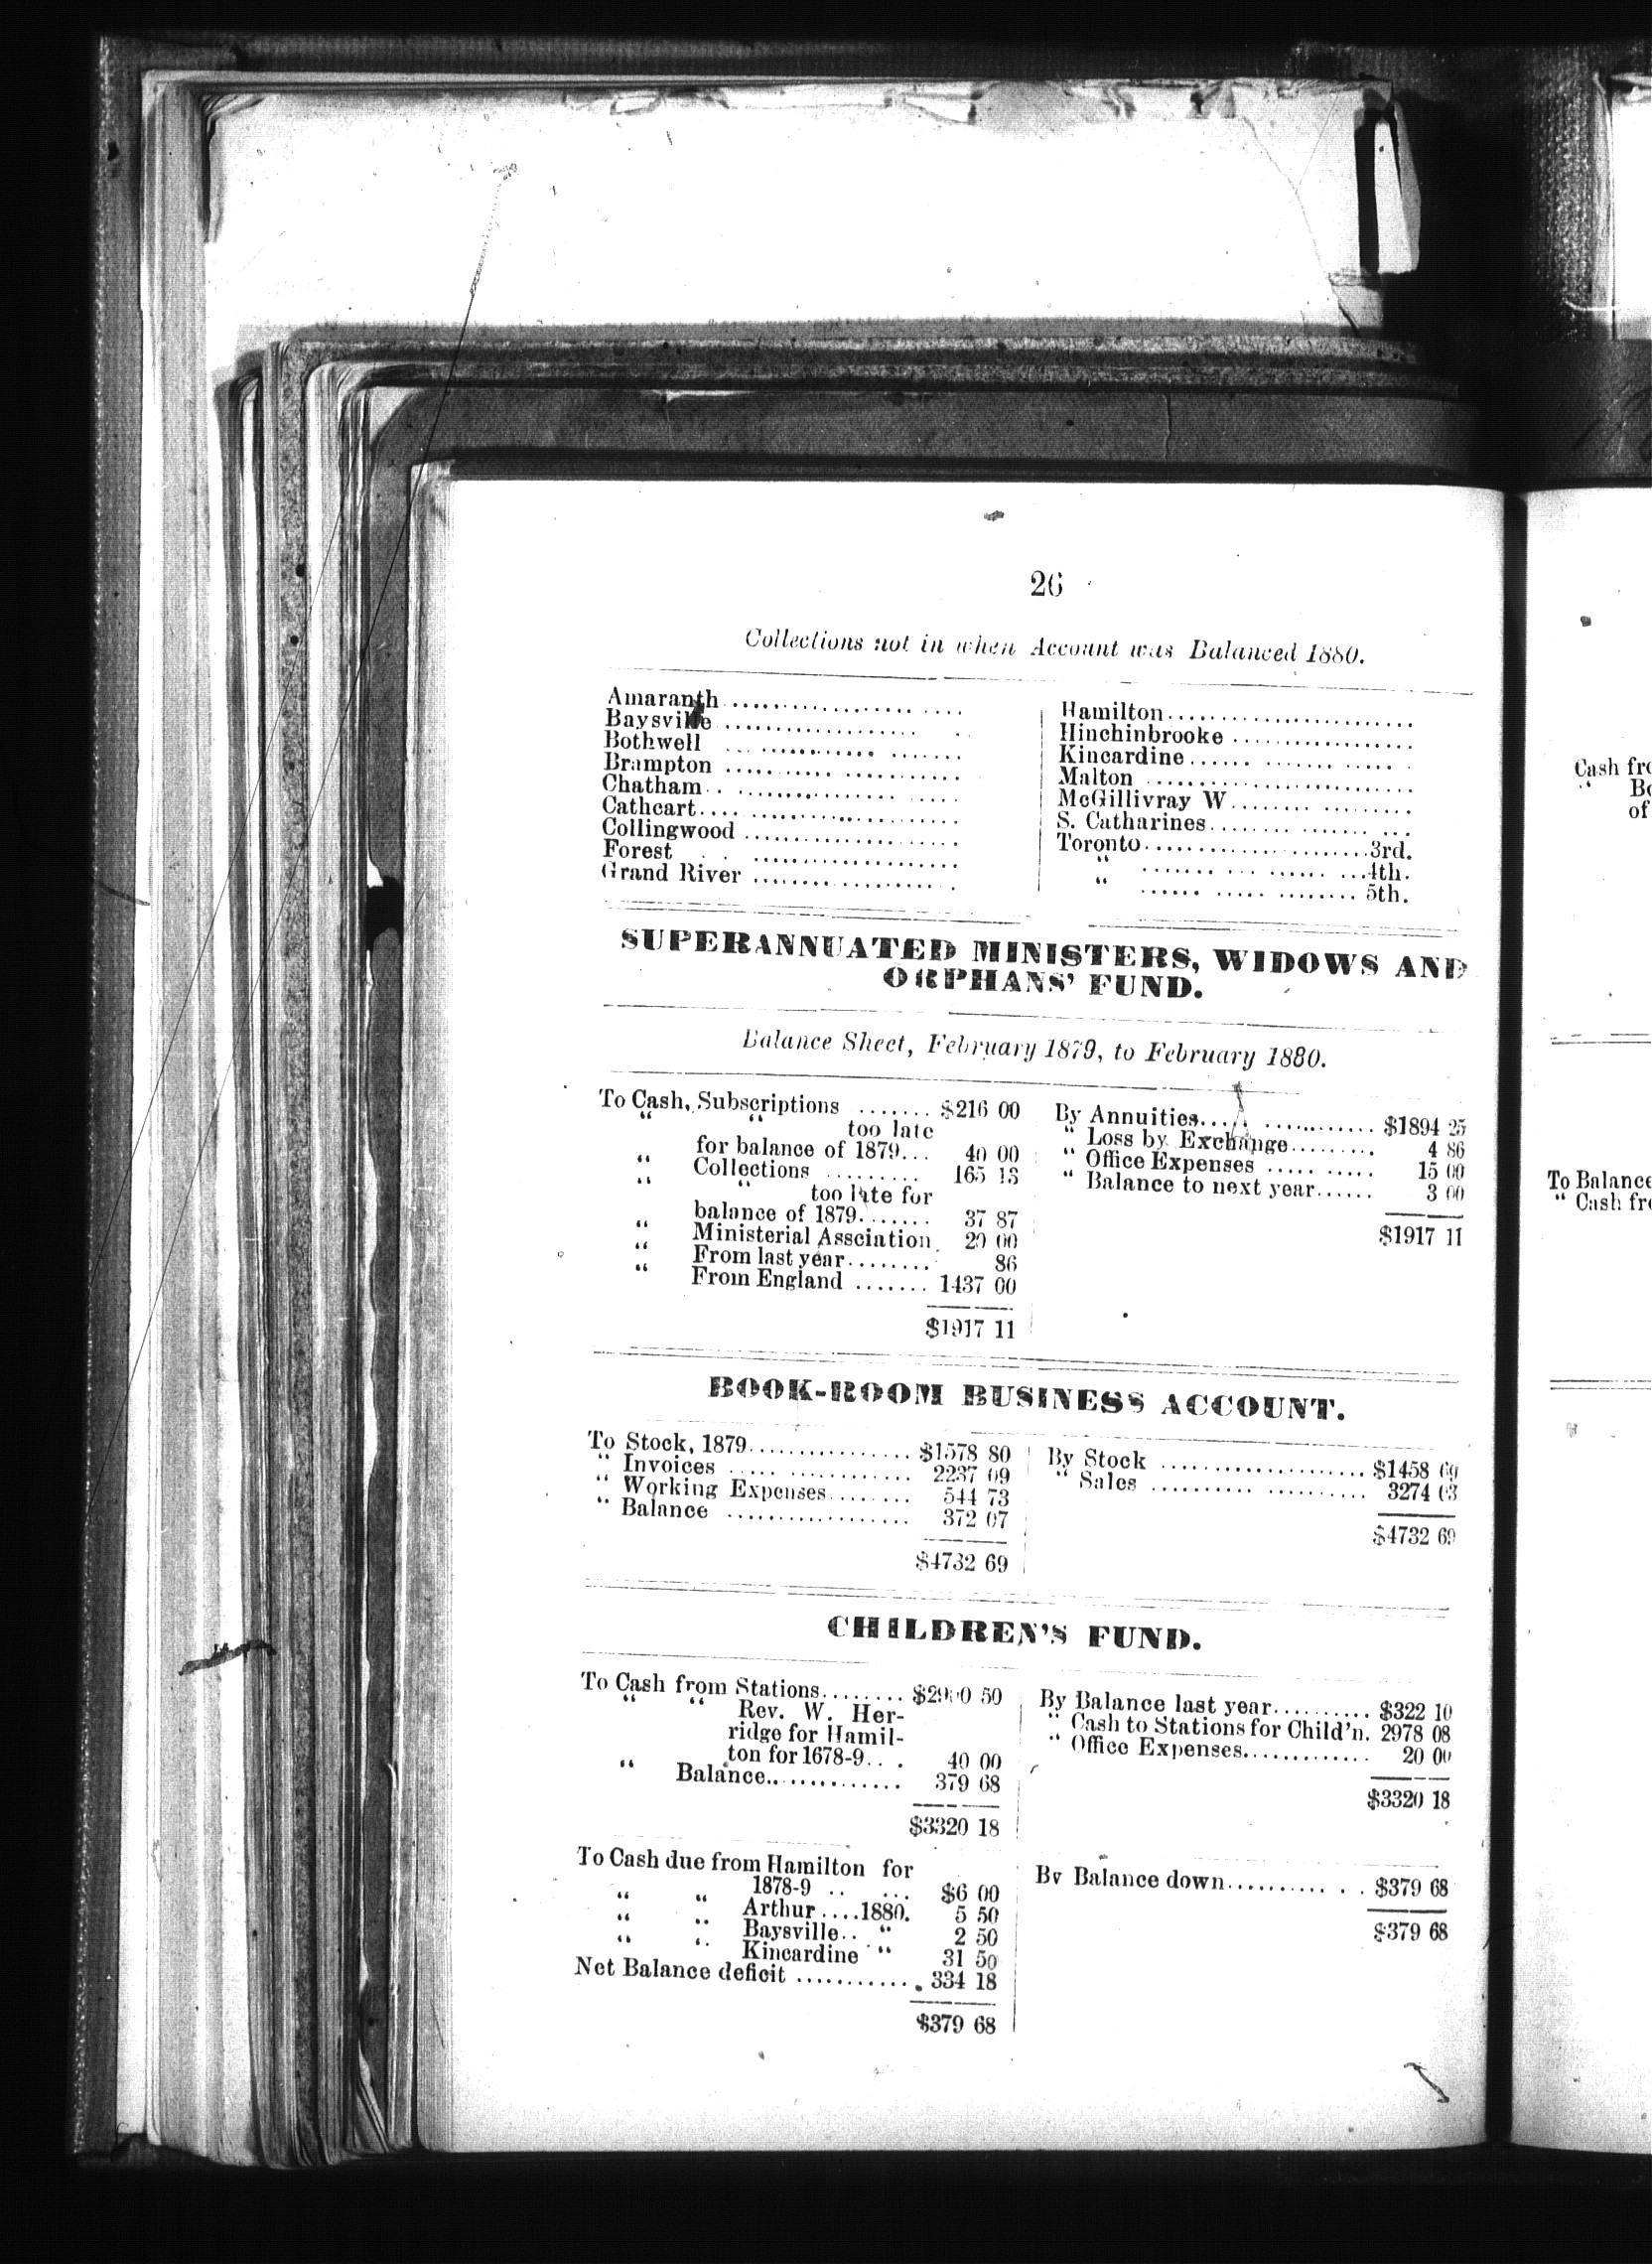 26
Collections not in when Account was Balanced 1880.
Amaranth
Baysville
Bothwell
Brampton
Chatham
Cathcart
Collingwood
Forest
Grand River
Hamilton
Hinchinbrooke
Kincardine
Malton
McGillivray W
S. Catharines
Toronto 3rd.
" 4th.
" 5th.
SUPERANNUATED MINISTERS, WIDOWS AND
ORPHANS' FUND.
Balance Sheet, February 1879, to February 1880.
To Cash, Subscriptions ....... $216 00
" " too late
for balance of 1879... 40 00
" Collections ......... 165 13
" " too late for
balance of 1879....... 37 87
" Ministerial Assciation 20 00
" From last year........ 86
" From England ....... 1437 00
$1917 11
By Annuities.... ........... $1894 25
" Loss by Exchange......... 4 86
" Office Expenses ..... ..... 15 00
" Balance to next year...... 3 00
$1917 11
BOOK-ROOM BUSINESS ACCOUNT.
To Stock, 1879................ $1578 80
" Invoices ..... ............ 2237 09
" Working Expenses........ 544 73
" Balance .................. 372 07
$4732 69
By Stock .................... $1458
" Sales .......... .......... 3274 03
$4732 69
CHILDREN'S FUND.
To Cash from Stations........ 50
" " Rev. W. Her-
ridge for Hamil-
ton for 1678-9.. . 40 00
" Balance.............. 379 68
$3320 18
By Balance last year.......... $322 10
" Cash to Stations for Child'n. 2978 08
" Office Expenses............. 20 00
$3320 18
To Cash due from Hamilton for
1878-9 .. ... $6 00
" " Arthur ....1880. 5 50
" " Baysville.. " 2 50
" " Kincardine " 31 50
Net Balance deficit ............ 334 18
$379 68
By Balance down........... . . $379 68
$379 68
Cash
of
To Balance
" Cash